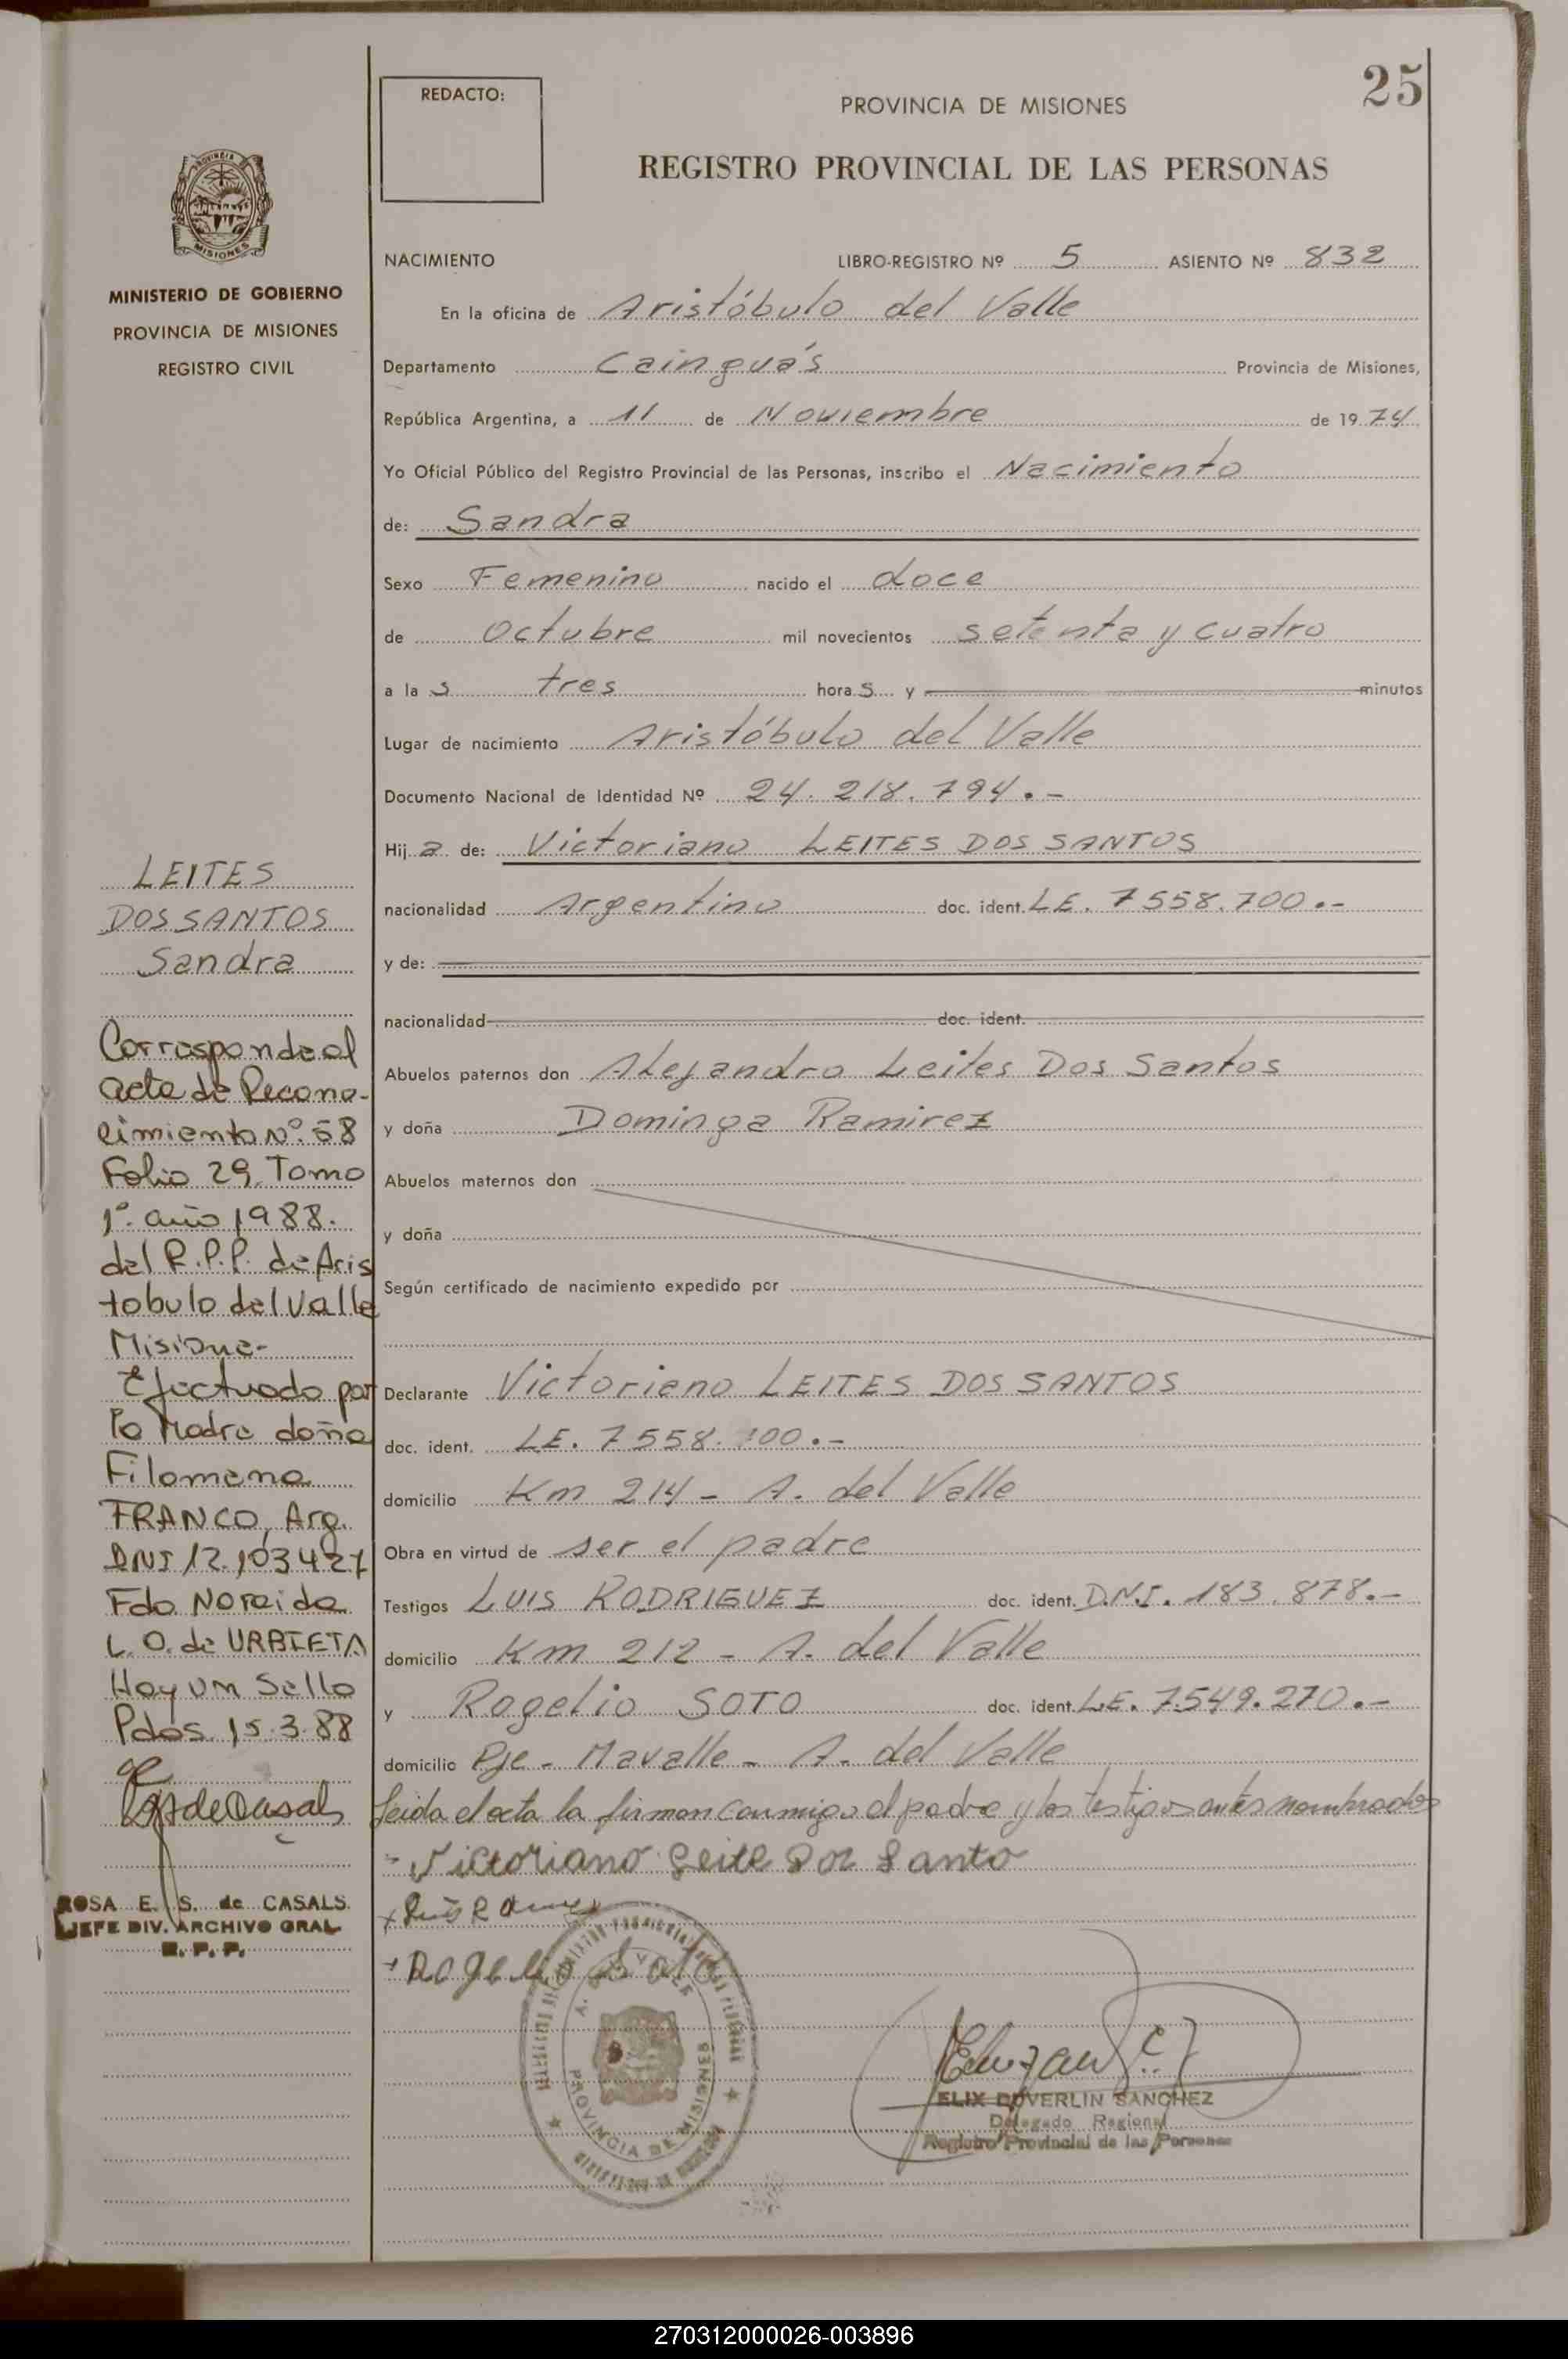 25
REDACTO:
PROVINCIA DE MISIONES
REGISTRO PROVINCIAL DE LAS PERSONAS
MISIONES
MINISTERIO DE GOBIERNO
PROVINCIA DE MISIONES
REGISTRO CIVIL
NACIMIENTO LIBRO-REGISTRO Nº 5 ASIENTO Nº 832
En la oficina de Aristóbulo del Valle
Departamento Cainguás Provincia de Misiones,
República Argentina, a 11 de Noviembre de 1974
Yo Oficial Público del Registro Provincial de las Personas, inscribo el Nacimiento
de: Sandra
Sexo Femenino nacido el doce
de Octubre mil novecientos setenta y cuatro
a la s tres hora s y minutos
Lugar de nacimiento Aristóbulo del Valle
Documento Nacional de Identidad Nº 24.218.794.-
Hij a de: Victoriano LEITES DOS SANTOS
nacionalidad Argentino doc. ident. LE. 7558.700.-
y de:
nacionalidad doc. ident.
Abuelos paternos don Alejandro Leites Dos Santos
y doña Dominga Ramirez
Abuelos maternos don
y doña
Según certificado de nacimiento expedido por
Declarante Victoriano LEITES DOS SANTOS
doc. ident. LE. 7558.700.-
domicilio Km 214 - A. del Valle
Obra en virtud de ser el padre
Testigos LUIS RODRIGUEZ doc. ident. D.N.I. 183.878.-
domicilio Km 212 - A. del Valle
y Rogelio SOTO doc. ident. L.E. 7.549.270.-
domicilio Pje - Mavalle - A. del Valle
Leida el acta la firman conmigo el padre y los testigos antes nombrados
Victoriano Leite Dos Santo
Rogelio Soto
PROVINCIA DE MISIONES
ELIX DUVERLIN SANCHEZ
Delegado Regional
Registro Provincial de las Personas
LEITES
DOS SANTOS
Sandra
Corresponde al
acta de Recono-
cimiento Nº 58
Folio 29 Tomo
1º año 1988.
del R.P.P. de Aris
tobulo del Valle
Misione-
Efectuado por
la Madre doña
Filomena
FRANCO, Arg.
DNI 12.103427
Fdo Noraida
L.O. de URBIETA
Hay un Sello
Pdas. 15.3.88
ROSA E. S. de CASALS
JEFE DIV. ARCHIVO GRAL
R. P. P.
270312000026-003896